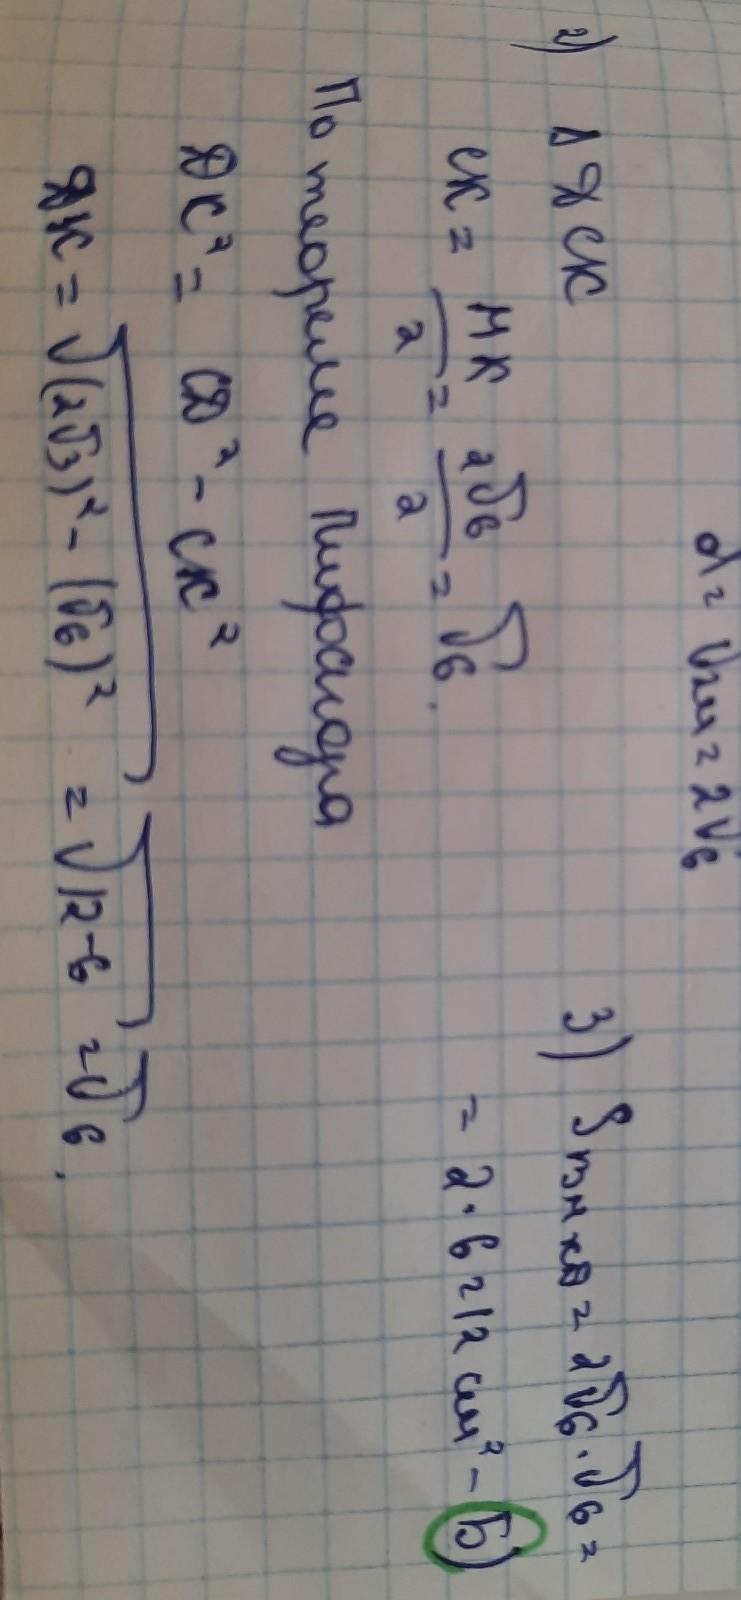 d = √24 = 2√6
2) Δ DCK
CK = MK/2 = 2√6/2 = √6.
По теореме Пифагора
DK² = CD² - CK²
DK = √((2√3)² - (√6)²) = √(12-6) = √6.
3) S = 2√6 · √6 =
= 2 · 6 = 12 см² - Б)